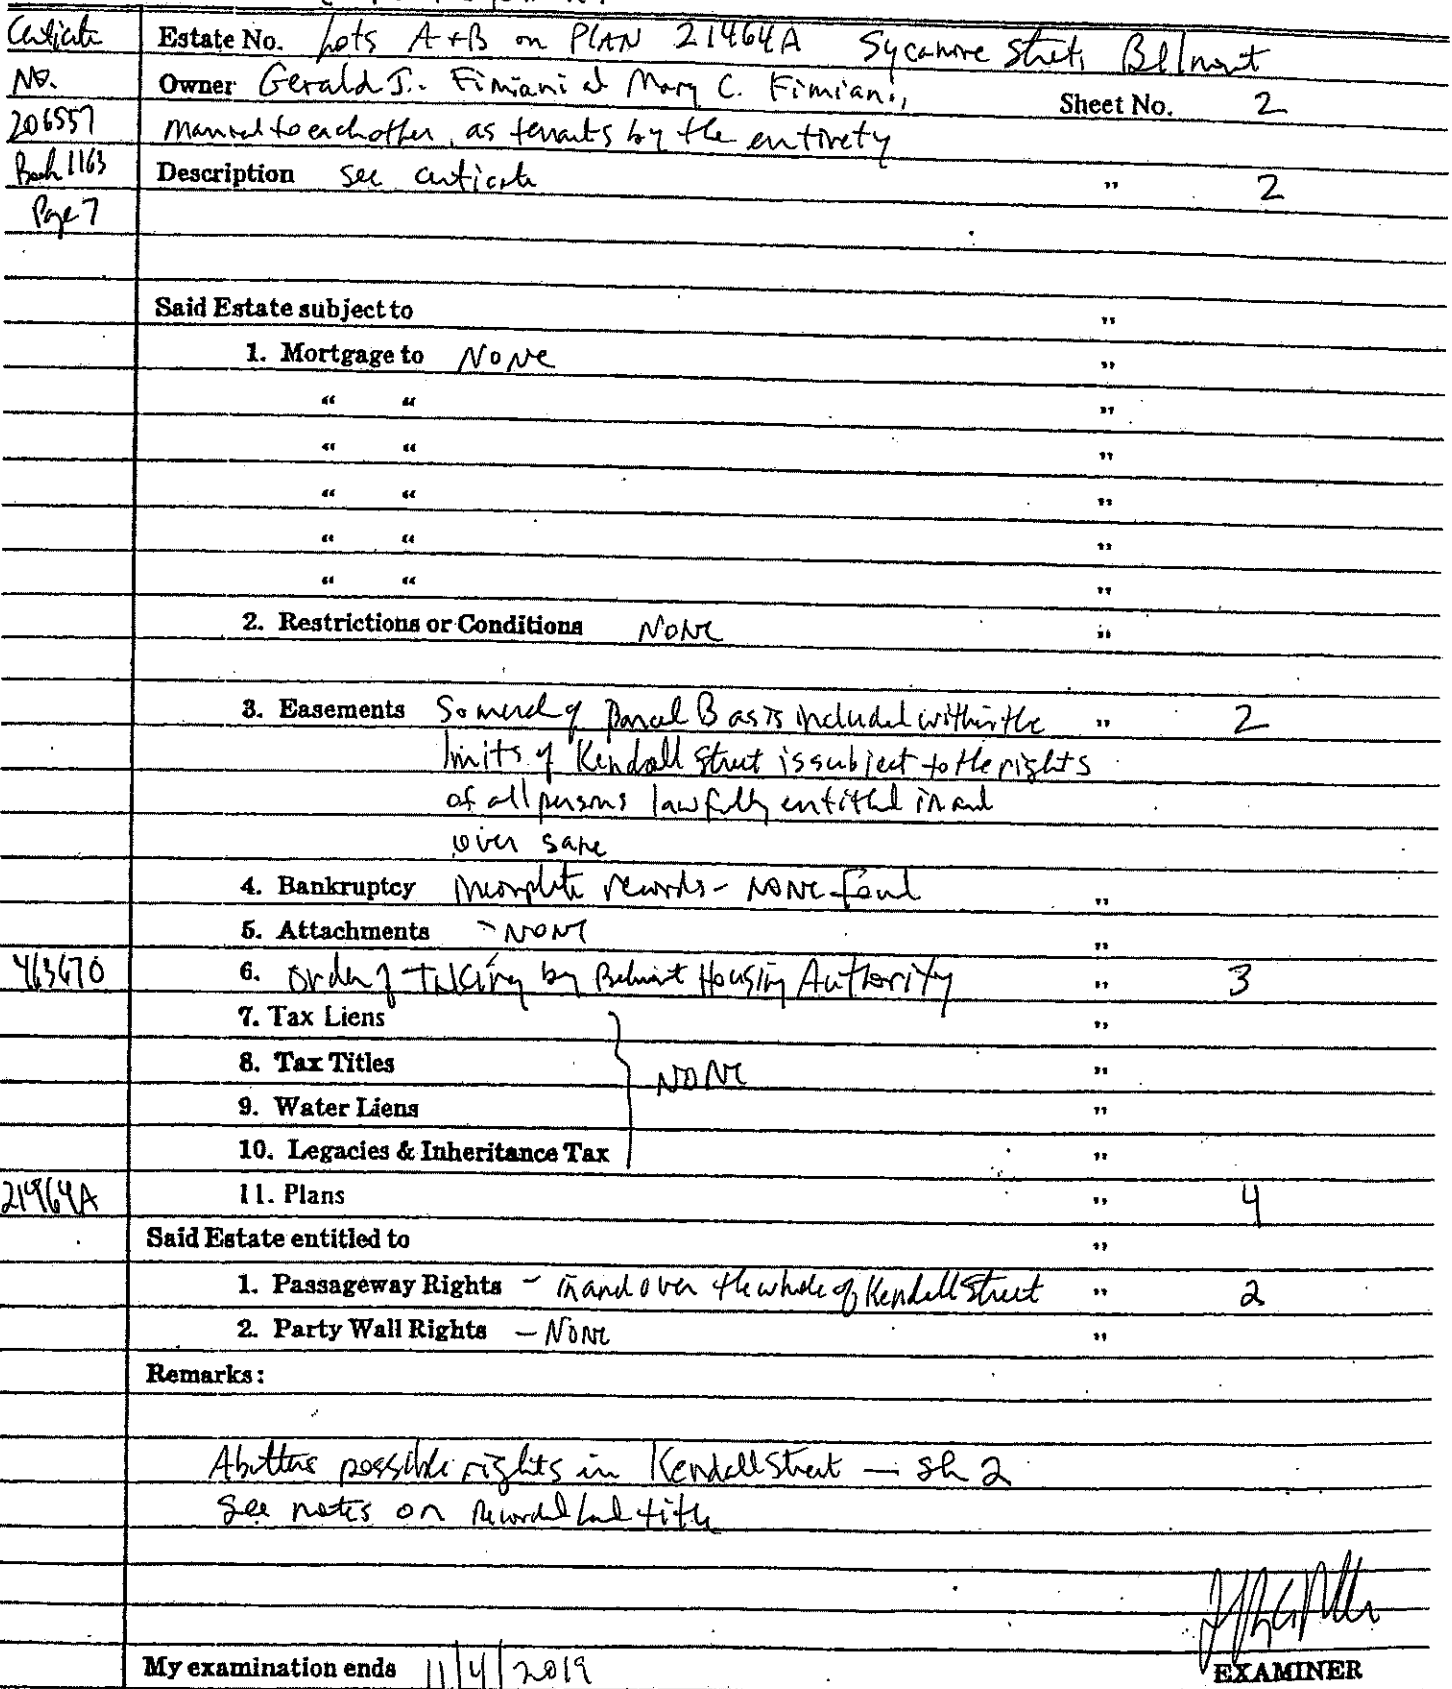 Certificate Estate No. Lots A+B on PLAN 21464A Sycamore Street, Belmont
No. Owner Gerald J. Fimiani & Mary C. Fimiani, Sheet No. 2
206557 married to each other, as tenants by the entirety
Book 1163 Description see certificate " 2
Page 7
Said Estate subject to "
1. Mortgage to NONE "
" " "
" " "
" " "
" " "
" " "
2. Restrictions or Conditions NONE "
3. Easements So much of parcel B as is included within the " 2
limits of Kendall Street is subject to the rights
of all persons lawfully entitled in and
over same
4. Bankruptcy incomplete records - NONE found "
5. Attachments - NONE "
463670 6. Order of taking by Belmont Housing Authority " 3
7. Tax Liens "
8. Tax Titles NONE "
9. Water Liens "
10. Legacies & Inheritance Tax "
21464A 11. Plans " 4
Said Estate entitled to "
1. Passageway Rights - in and over the whole of Kendall Street " 2
2. Party Wall Rights - NONE "
Remarks:
Abutters possible rights in Kendall Street — sh 2
See notes on Recorded Land title
My examination ends 11/4/2019 EXAMINER